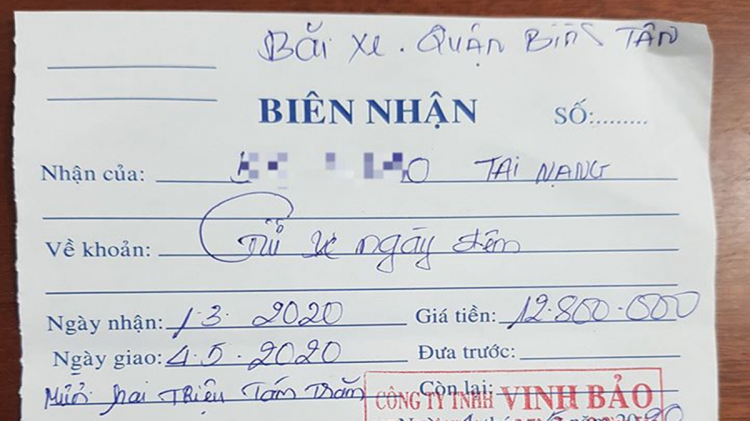 BÃI XE. QUẬN BÌNH TÂN
BIÊN NHẬN
SỐ:.........
Nhận của: TAI NẠNG
Về khoản: Gửi xe ngày đêm
Ngày nhận: 1.3.2020 Giá tiền: 12.800.000
Ngày giao: 4.5.2020 Đưa trước:
Mười hai Triệu Tám Trăm Còn lại:
CÔNG TY TNHH VINH BẢO